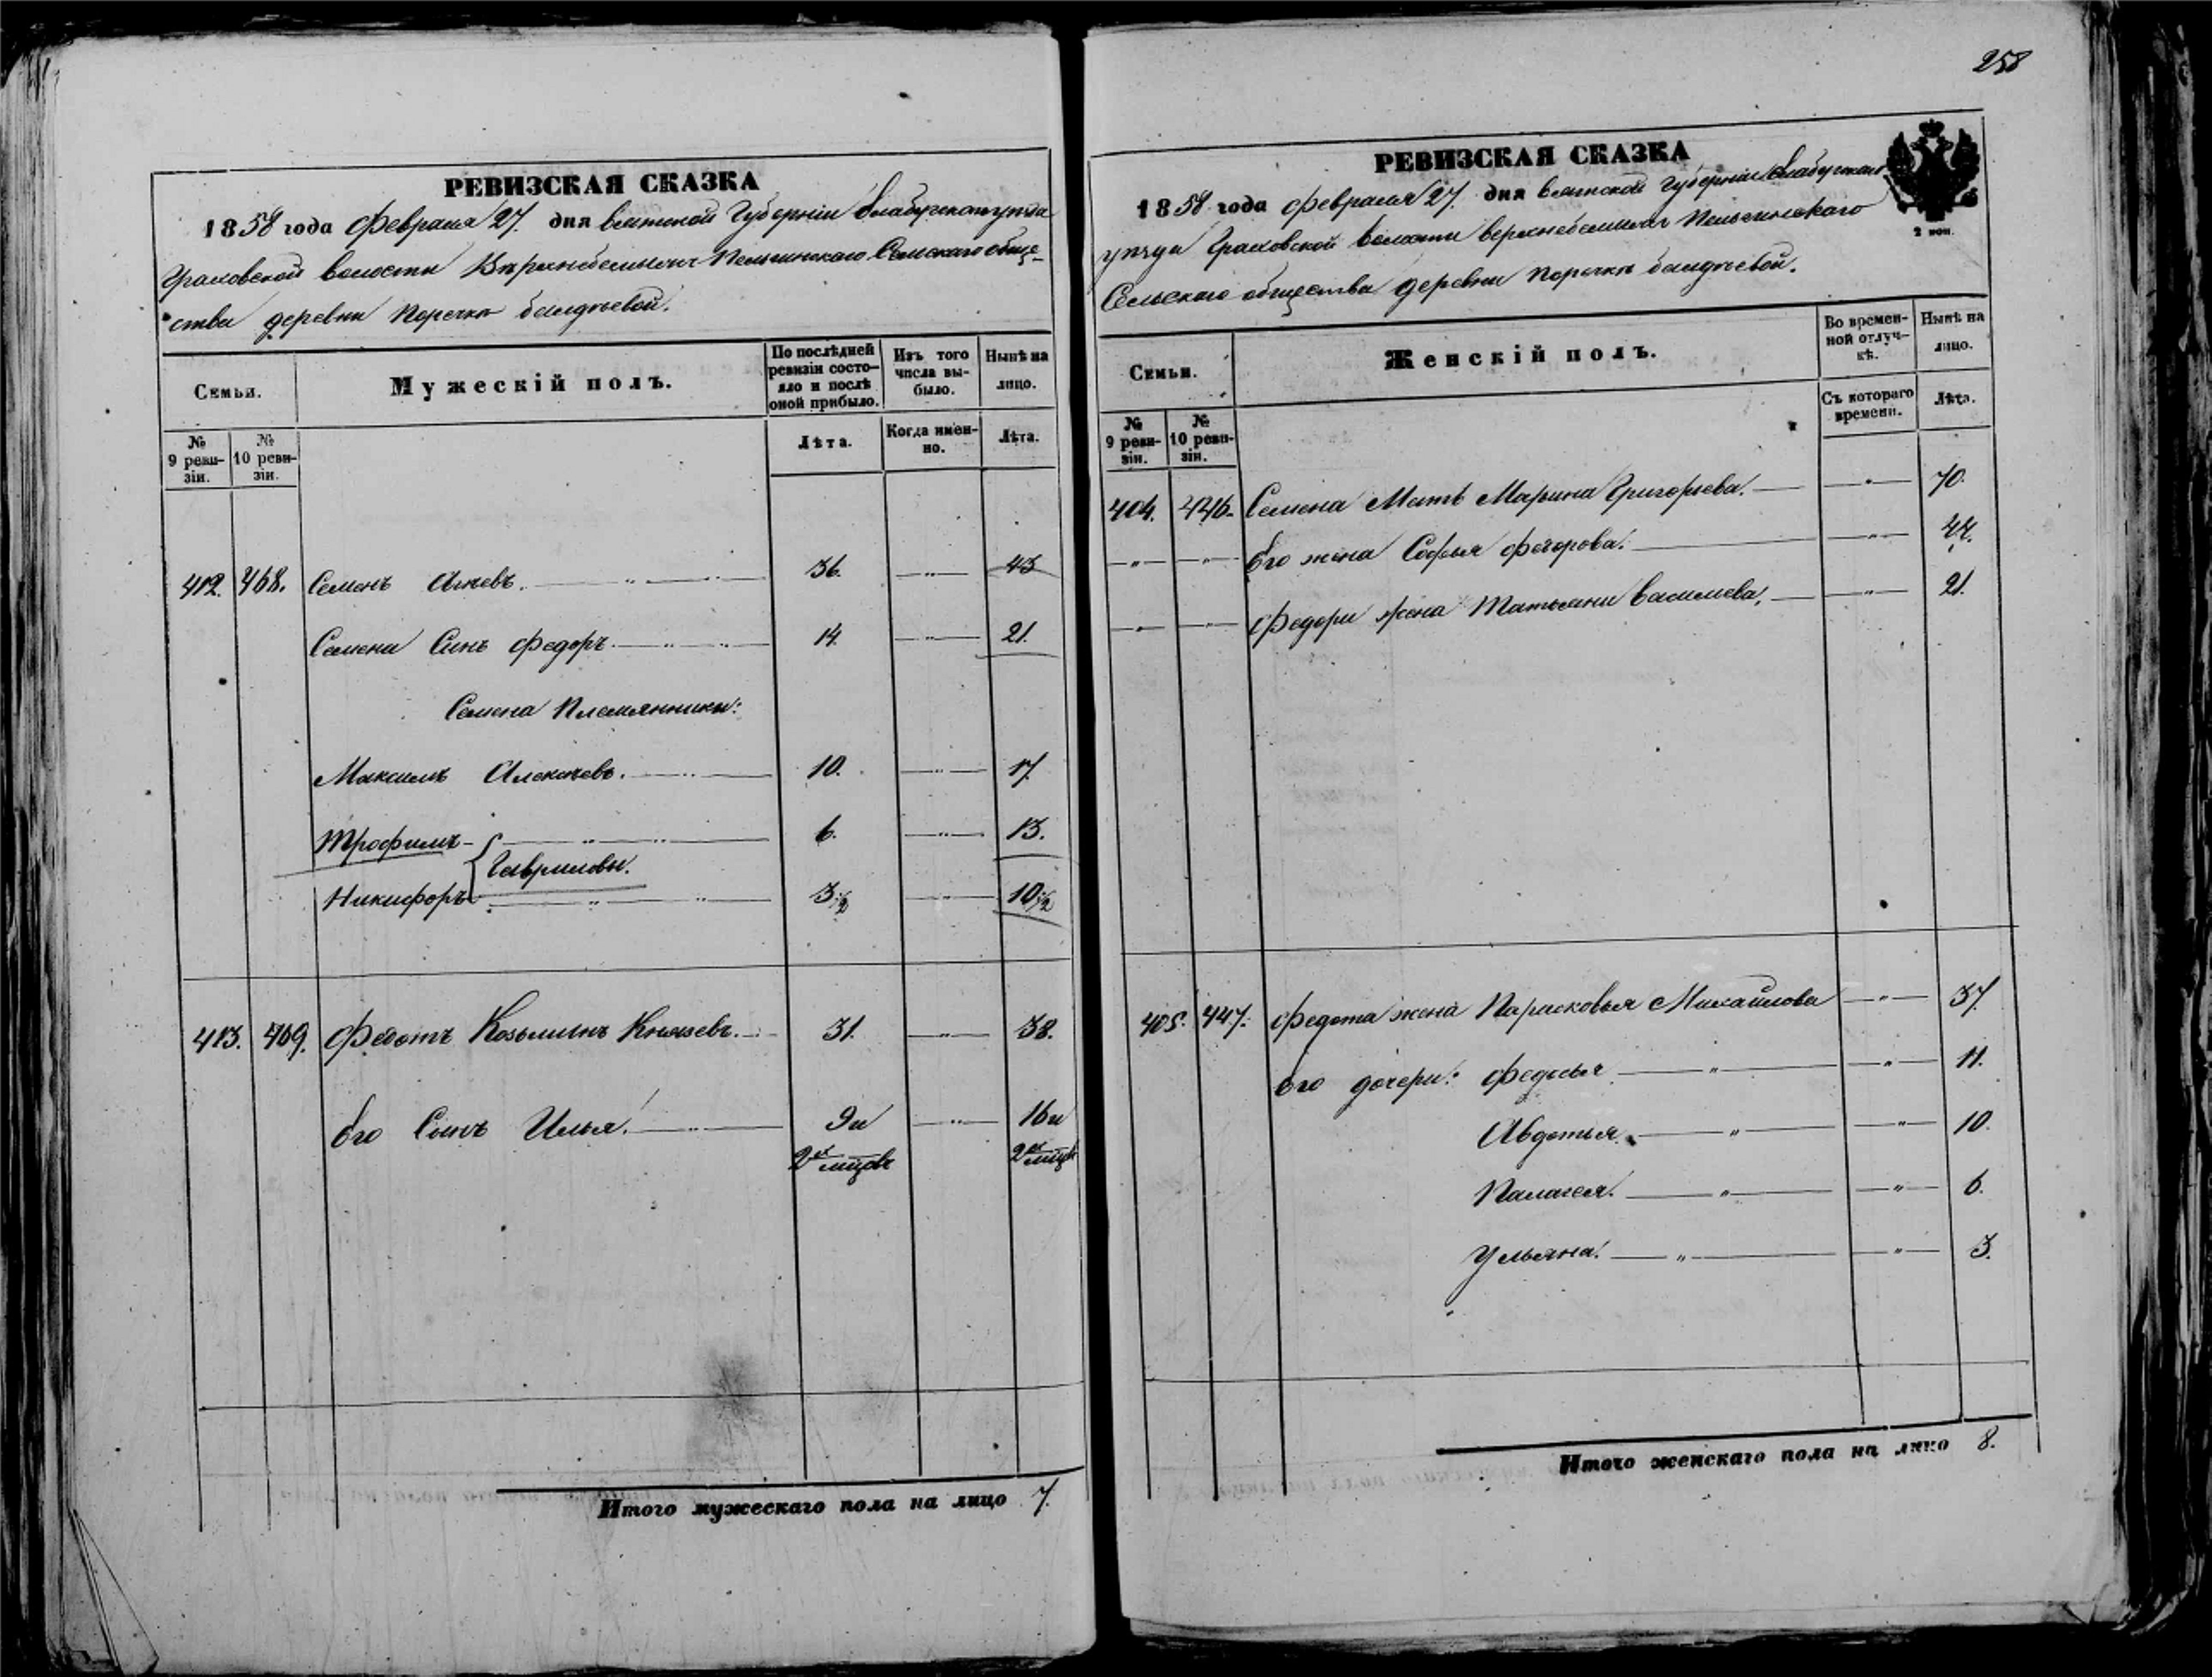 РЕВИЗСКАЯ СКАЗКА
1858 года Февраля 27. дня Вятской Губерніи Елабужскаго уѣзда
Граховской волости Верхнебемыжъ Пельгинскаго Сельскаго обще-
ства деревни Поречки Балдѣевой.
Семьи.
Мужескій полъ.
По послѣдней ревизіи состо-яло и послѣ оной прибыло.
Изъ того числа вы-было.
Нынѣ на лицо.
№ 9 реви-зіи.
№ 10 реви-зіи.
Лѣта.
Когда имен-но.
Лѣта.
412. 468. Семенъ 36. — " — 43
Семена Сынъ Федоръ 14. — " — 21.
Семена Племянники:
Максимъ Алексѣевъ. 10. — " — 17.
Трофимъ 6. — " — 13.
Гавриловы.
Никифоръ 3 1/2 — " — 10 1/2
413. 469. Федотъ Козьминъ Князевъ. 31. — " — 38.
Его Сынъ Илья. 9 и — " — 16 и
2хъ мѣсцовъ 2хъ мѣсцовъ
Итого мужескаго пола на лицо 7.
258
РЕВИЗСКАЯ СКАЗКА
1858 года Февраля 27. дня Вятской Губерніи Елабужскаго
уѣзда Граховской Волости Верхнебемыжъ Пельгинскаго
Сельскаго общества деревни Поречки Балдѣевой.
2 коп.
Семьи.
Женскій полъ.
Во времен-ной отлуч-кѣ.
Нынѣ на лицо.
№ 9 реви-зіи.
№ 10 реви-зіи.
Съ котораго времени.
Лѣта.
404. 446. Семена Мать Марина Григорьева. — " — 70.
— " — — " — Его жена Софья Федорова. — " — 44.
— " — — " — Федора жена Татьяна Васильева. — " — 21.
405. 447. Федота жена Парасковья Михайлова — " — 37.
Его дочери: Федосья — " — — " — 11.
Авдотья. — " — — " — 10.
Палагея. — " — — " — 6.
Ульяна. — " — — " — 3.
Итого женскаго пола на лицо 8.